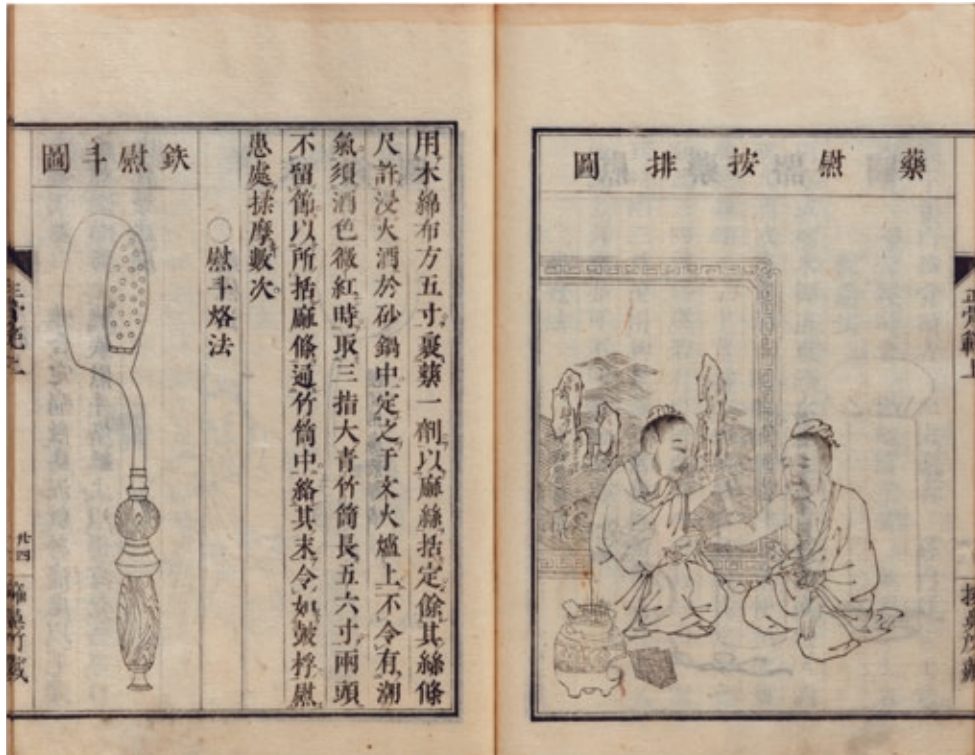 藥慰按排圖
正骨範上
用木綿布方五寸裹藥一劑以麻絲括定餘其絲條
尺許浸火酒於砂鍋中定之于文火爐上不令有潮
氣須酒色微紅時取三指大青竹筒長五六寸兩頭
不留節以所括麻條通竹筒中絡其末令如皷桴慰
患處揉摩數次
○慰斗烙法
鉄慰斗圖
廿四